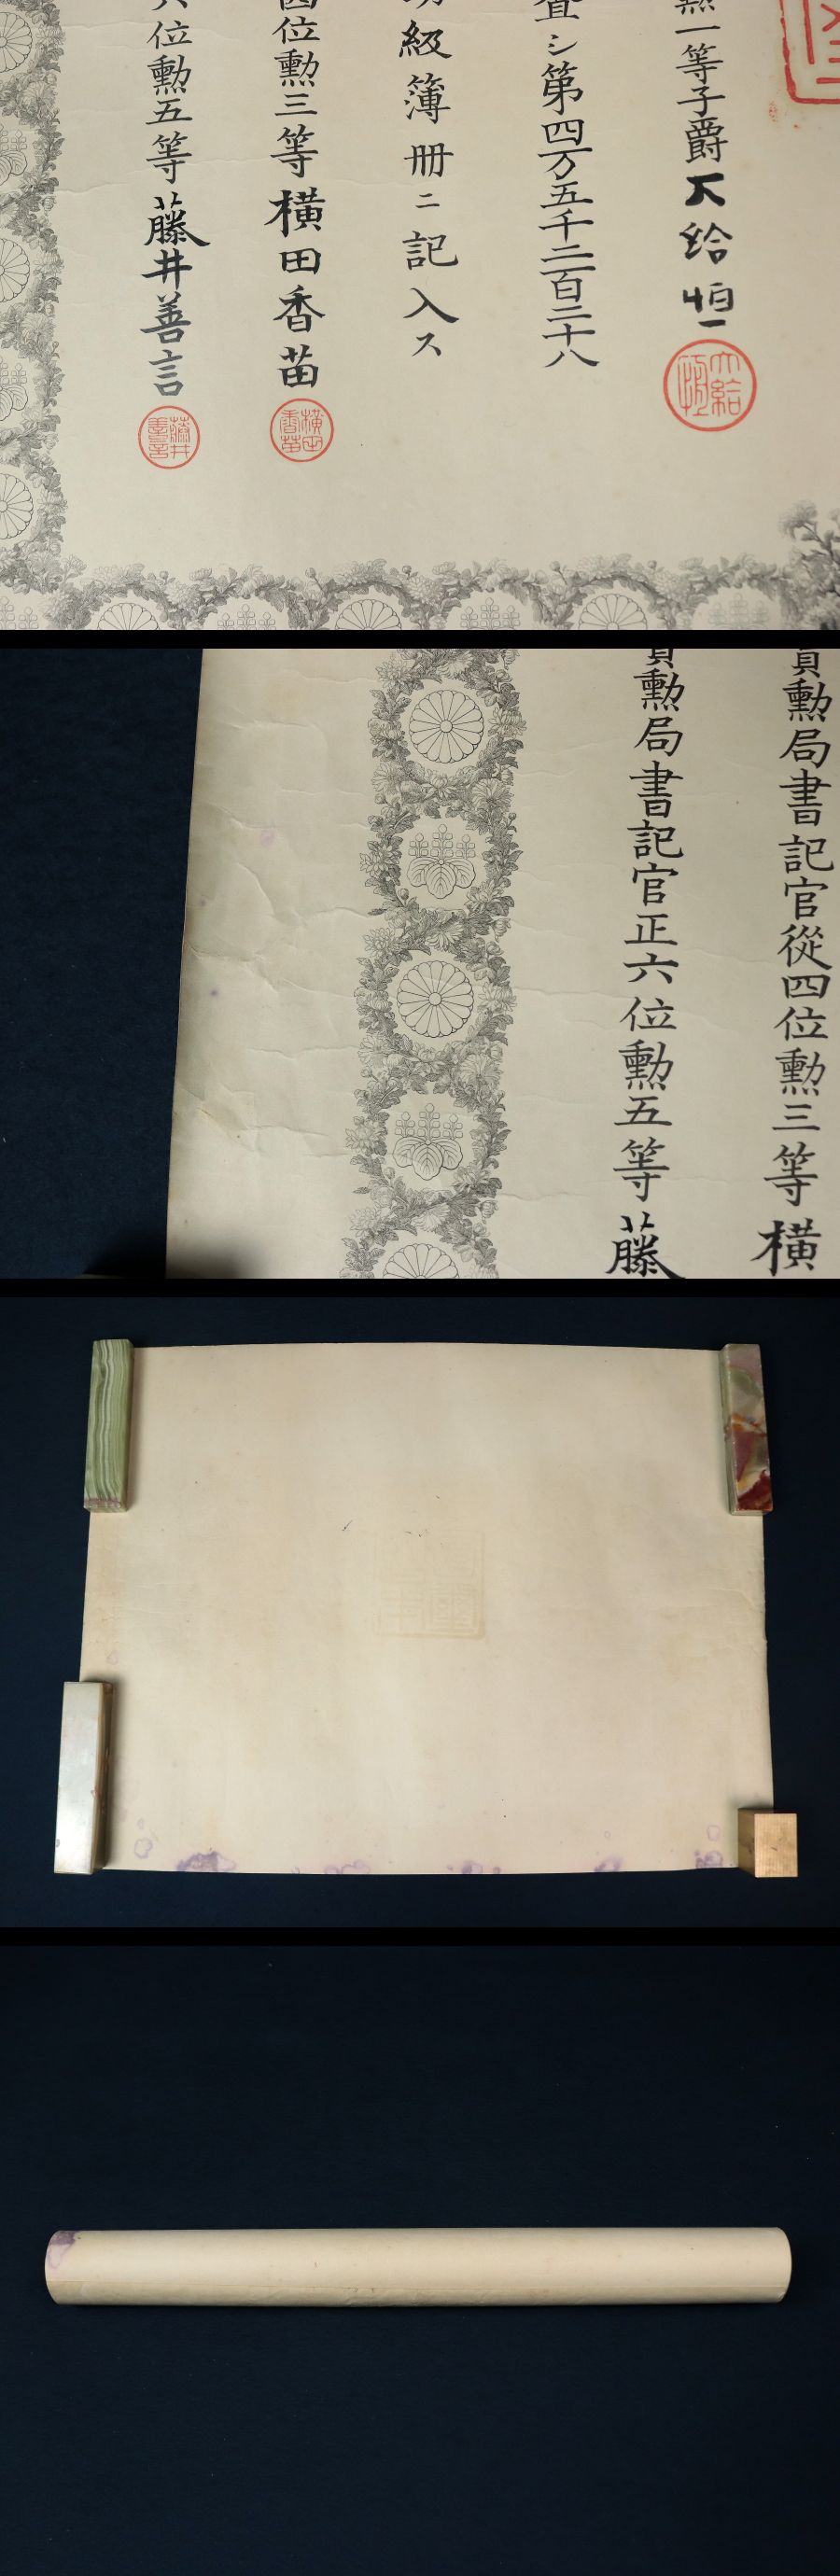 勲一等子爵大給恒
大給恒
査シ第四万五千二百二十八
功級簿冊ニ記入ス
四位勲三等横田香苗
横田香苗
六位勲五等藤井善言
藤井善言
賞勲局書記官從四位勲三等横
賞勲局書記官正六位勲五等藤